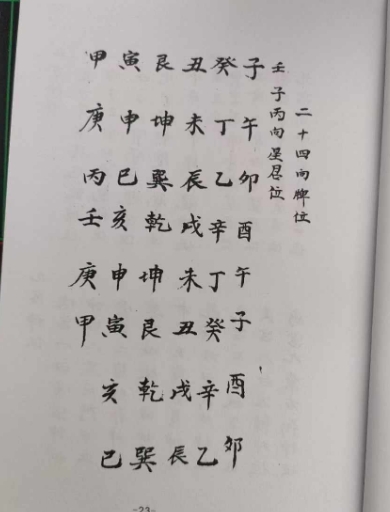 二十四向牌位
壬子丙向星位
子午卯酉午子酉卯
癸丁乙辛丁癸辛乙
丑未辰戌未丑戌辰
艮坤巽乾坤艮乾巽
寅申巳亥申寅亥巳
甲庚丙壬庚甲
-23-